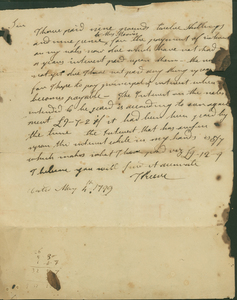 Sir
I have paid nine pounds twelve shillings
and nine pence, for the payment of interest
on my note now due which have not had
a years interest paid upon them
not yet due I have not paid any thing upon
for I hope to pay principal & interest when they
become payable - The Interest on the note
intended to be paid is according to our agree
ment £9-7-2 if it had been paid by
the time - the Interest that has arisen
upon the interest while in my hands is 5/7
which makes what I have paid £9-12-9
I believe you will find it accurate
May 4th 1789